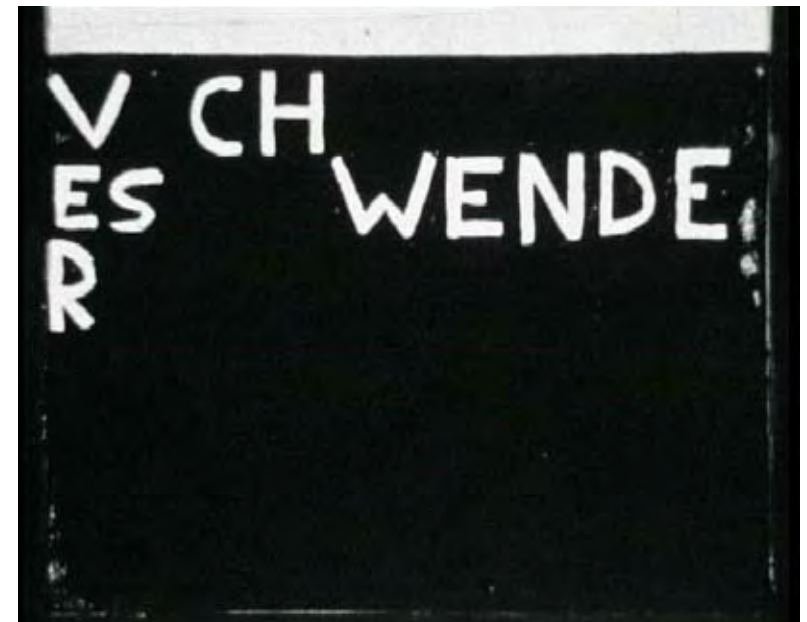 V CH
ES WENDE
R